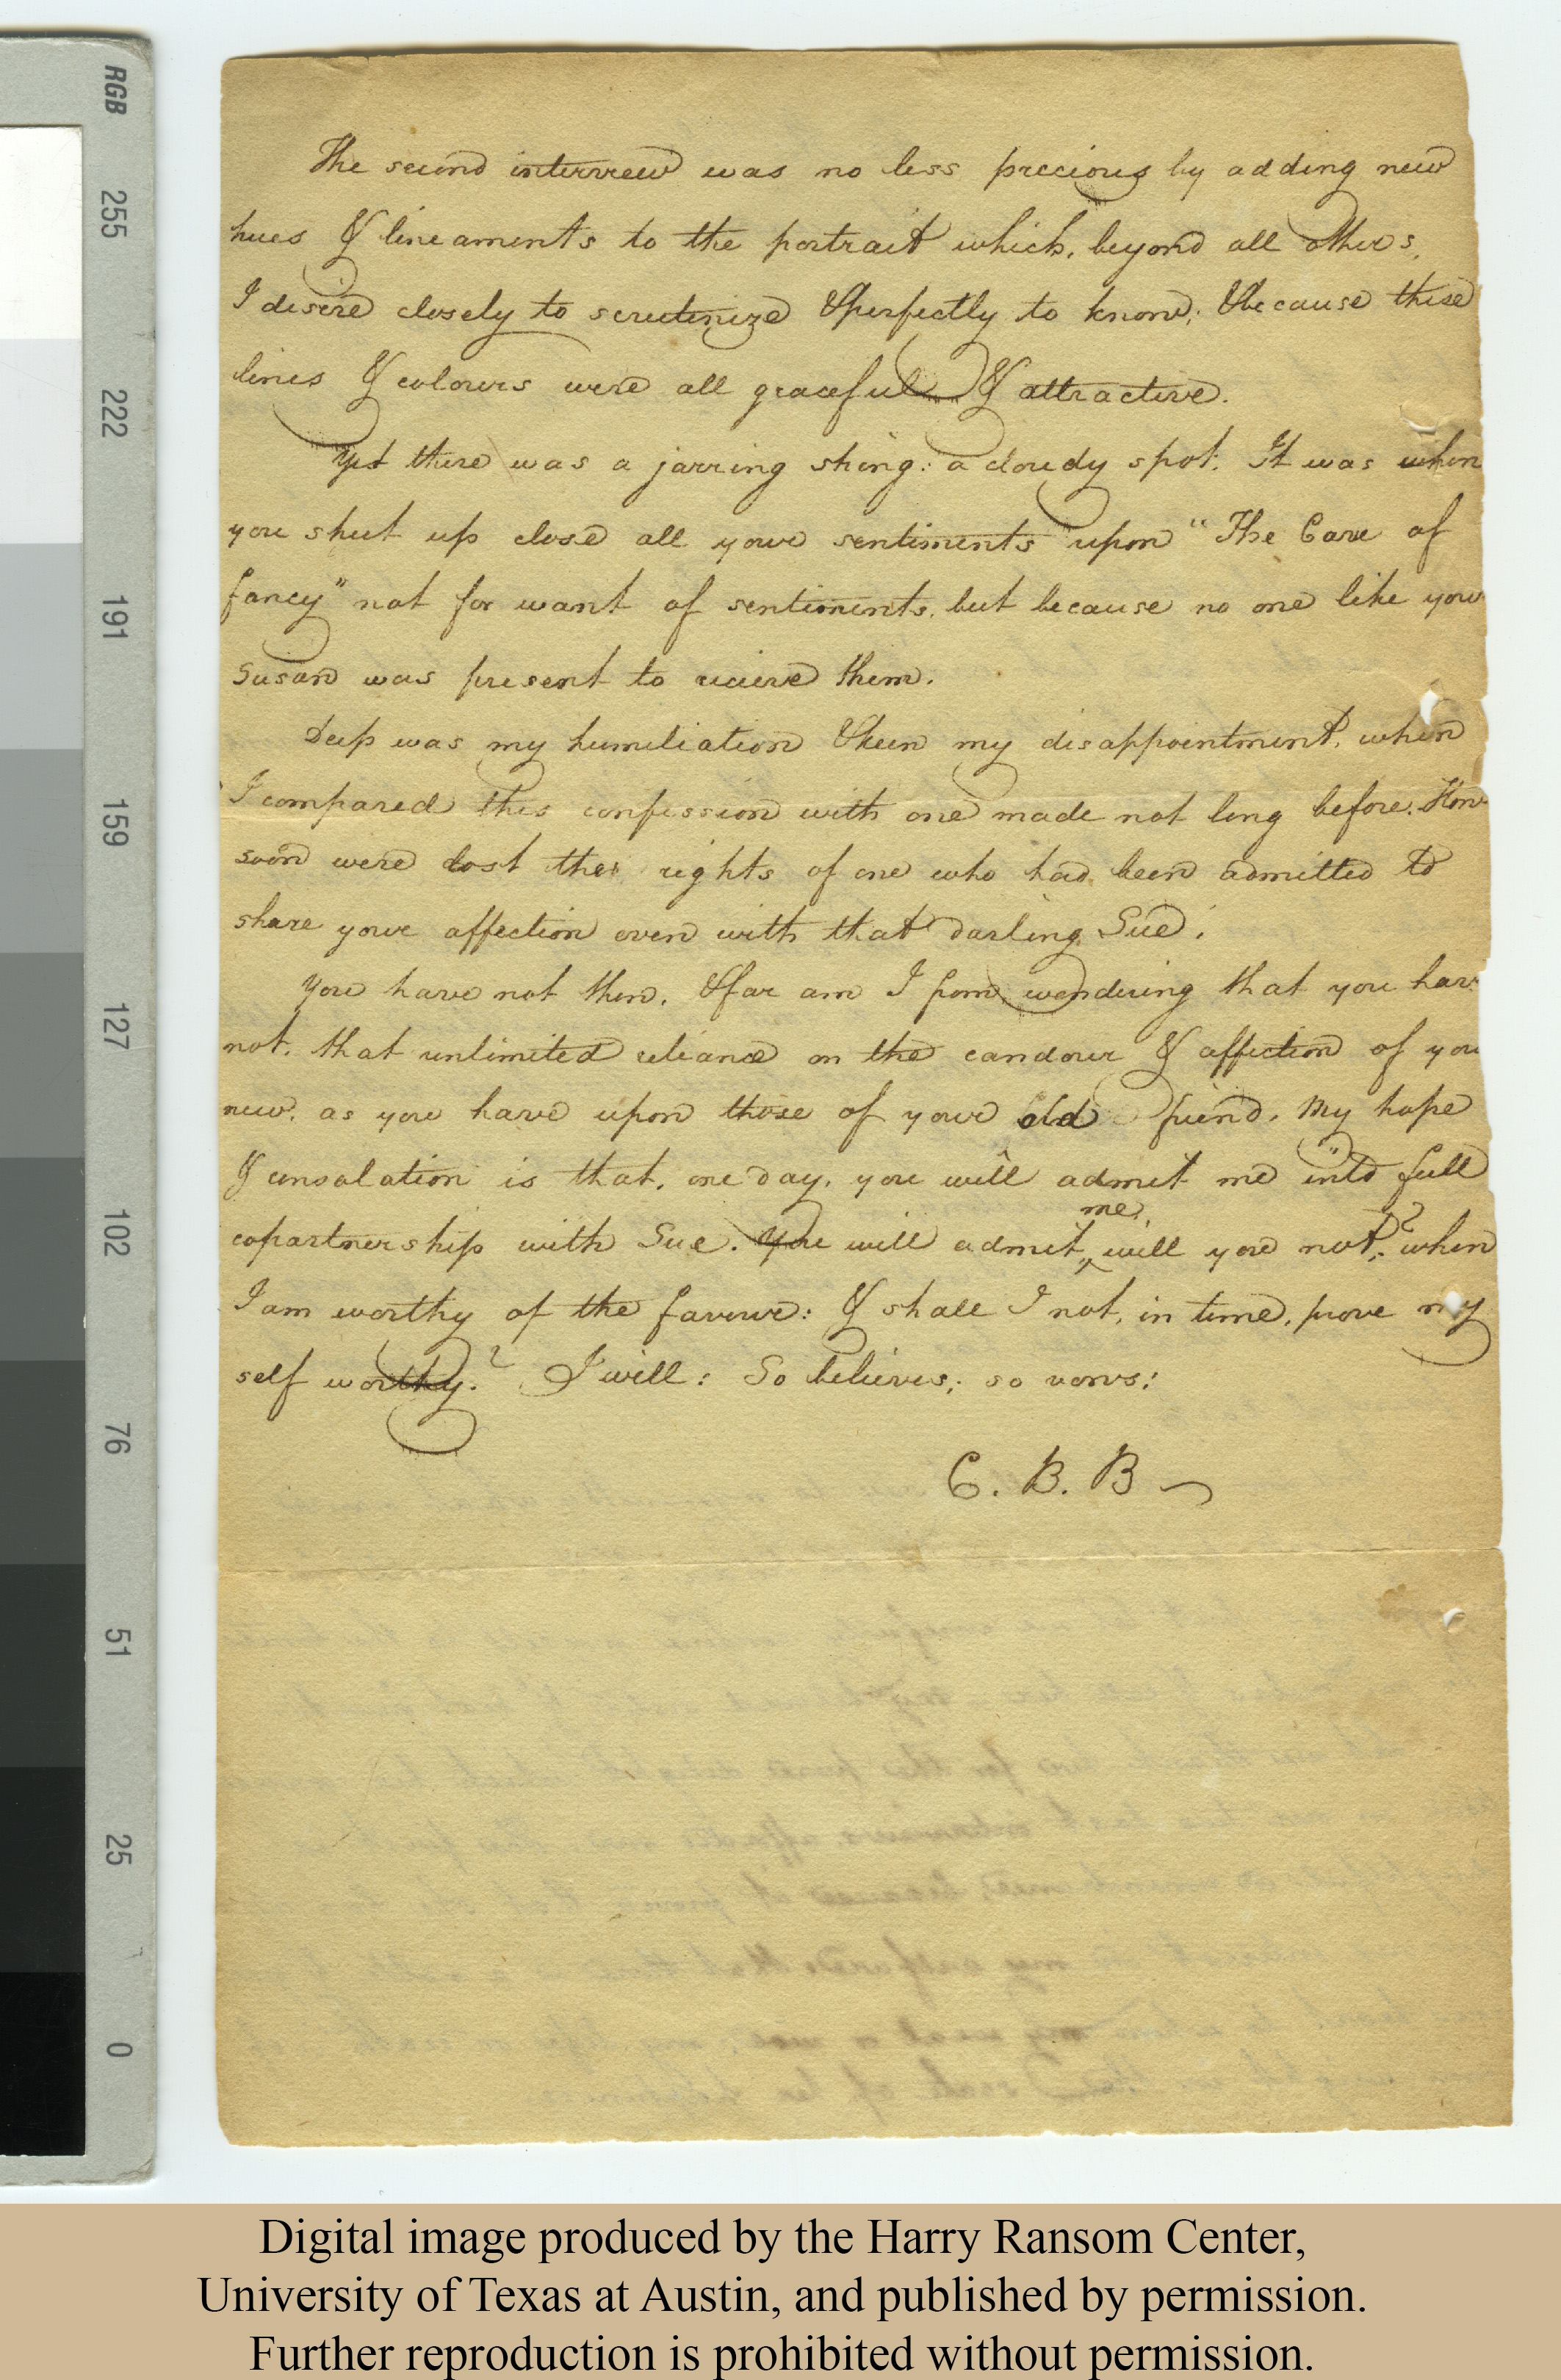 RGB
255
222
191
159
127
102
76
51
25
0
The second interview was no less precious by adding new
hues & lineaments to the portrait which, beyond all others,
I desire closely to scrutenize & perfectly to know; & because these
lines & colours were all graceful & attractive.
Yet there was a jarring string: a cloudy spot. It was when
you shut up close all your sentiments upon "The Cave of
fancy" not for want of sentiments, but because no one like your
Susan was present to receive them.
Deep was my humiliation & keen my disappointment, when
I compared this confession with one made not long before. How
soon were lost the rights of one who had been admitted to
share your affection even with that darling Sue!
You have not then, & far am I from wondering that you have
not, that unlimited reliance on the candour & affection of your
new, as you have upon those of your old friend. My hope
& consolation is that, one day, you will admit me into full
copartnership with Sue. You will admit me, will you not? when
I am worthy of the favour: & shall I not, in time, prove my
self worthy? I will: So believes; so vows;
C. B. B
Digital image produced by the Harry Ransom Center,
University of Texas at Austin, and published by permission.
Further reproduction is prohibited without permission.